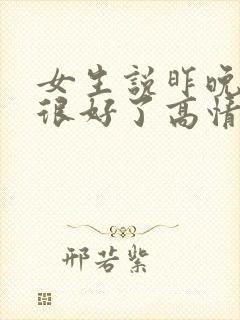 女生説昨晚
很好了高情
邢若紫